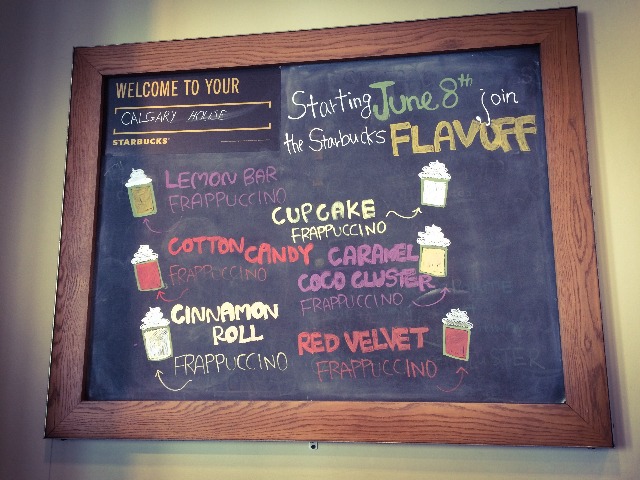 WELCOME TO YOUR
CALGARY HOUSE
STARBUCKS®
Starting June 8th join
the Starbucks FLAVOFF
LEMON BAR
FRAPPUCCINO
CUPCAKE
FRAPPUCCINO
COTTON CANDY
FRAPPUCCINO
CARAMEL
COCO CLUSTER
FRAPPUCCINO
CINNAMON
ROLL
FRAPPUCCINO
RED VELVET
FRAPPUCCINO